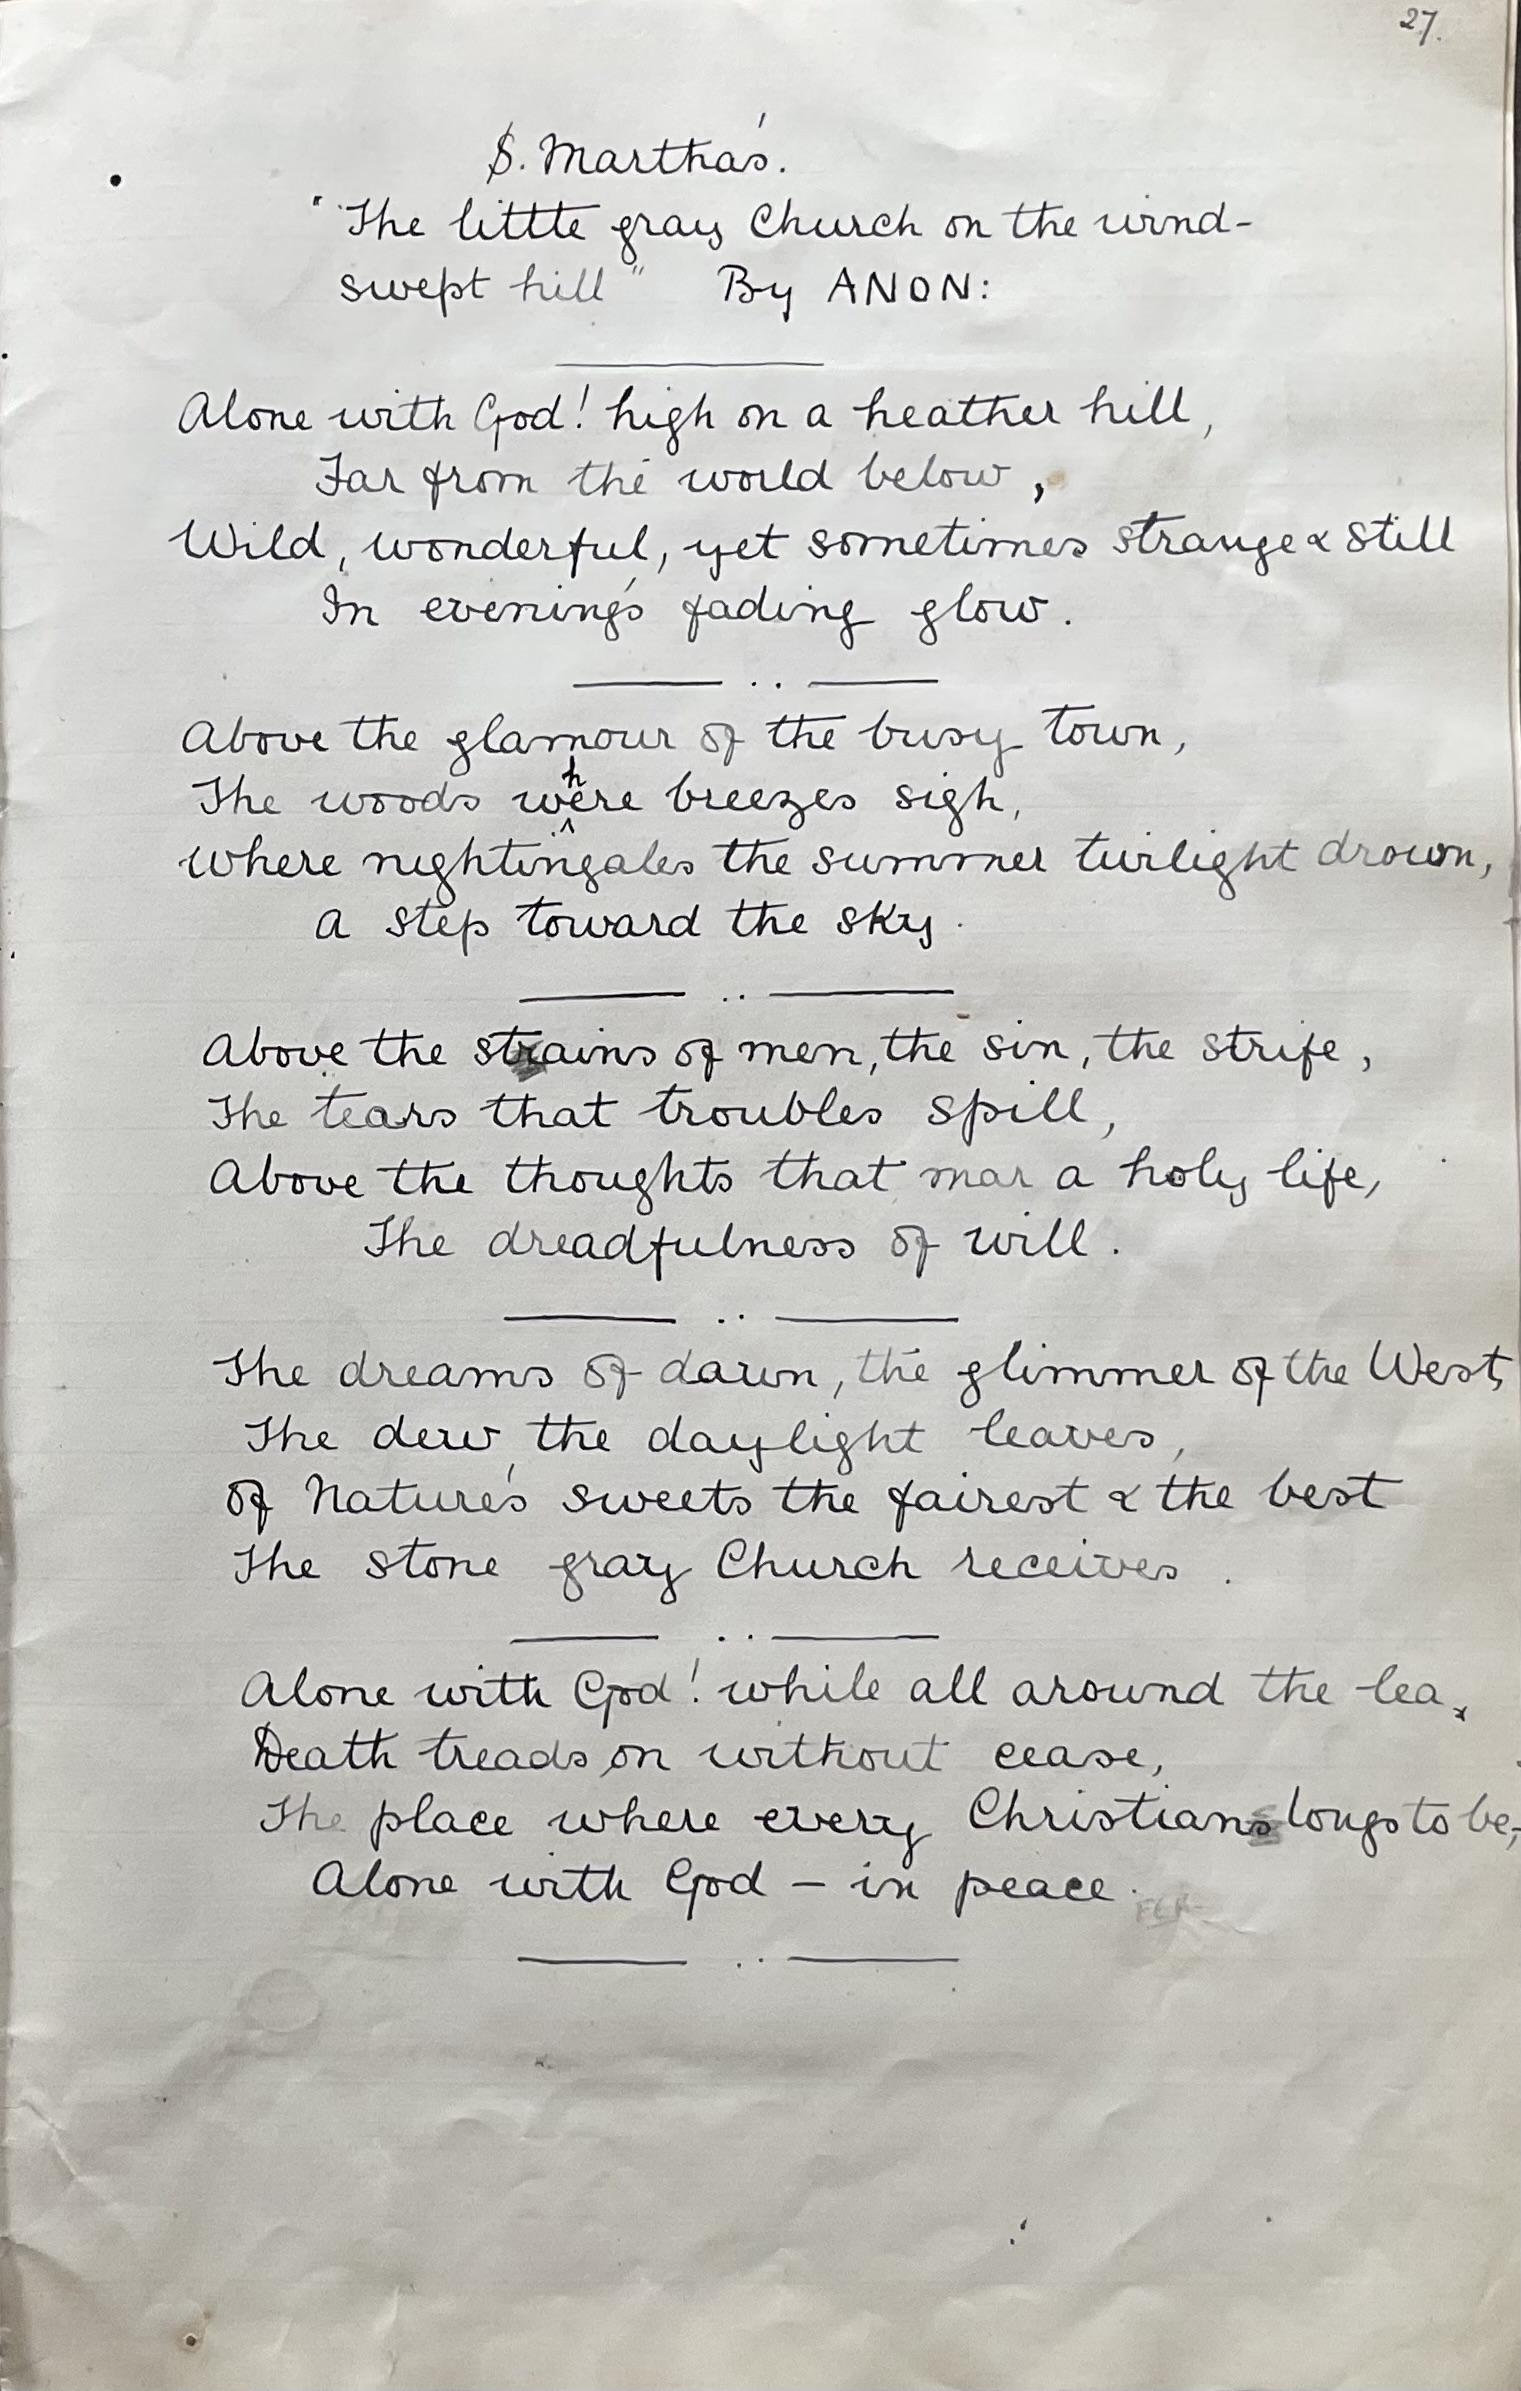 27.
S. Martha's.
"The little gray Church on the wind-
swept hill" By ANON:
Alone with God! high on a heather hill,
Far from the world below,
Wild, wonderful, yet sometimes strange & still
In evening's fading glow.
Above the glamour of the busy town,
The woods where breezes sigh,
Where nightingales the summer twilight drown,
A step toward the sky.
Above the strains of men, the sin, the strife,
The tears that troubles spill,
Above the thoughts that mar a holy life,
The dreadfulness of will.
The dreams of dawn, the glimmer of the West,
The dew the daylight leaves,
Of Nature's sweets the fairest & the best
The stone gray Church receives.
Alone with God! while all around the lea,
Death treads on without cease,
The place where every Christian longs to be,
Alone with God – in peace.